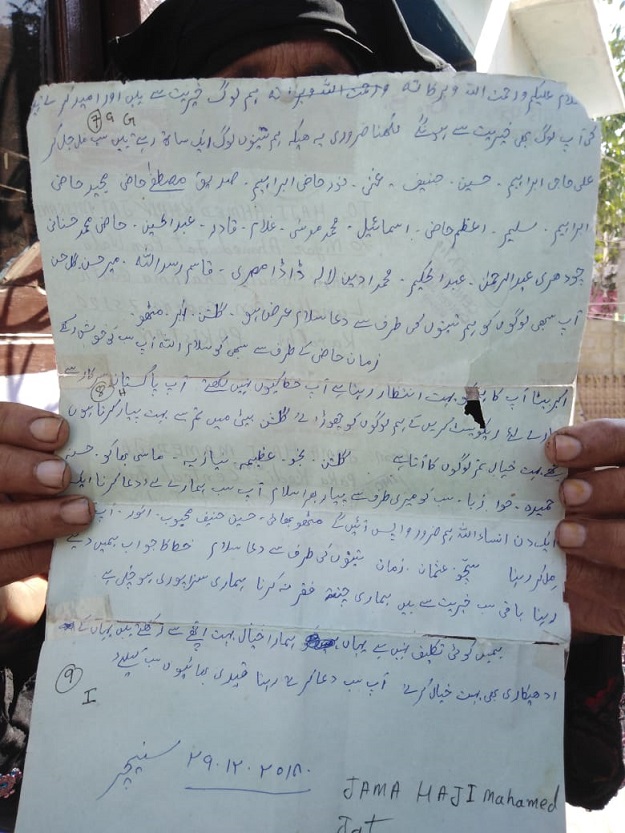 سلام علیکم ورحمت اللہ وبرکاتہ ورحمت اللہ وبرکاتہ ہم لوگ خیریت سے ہیں اور امید کرتے ہیں
کہ آپ لوگ بھی خیریت سے ہوں گے لکھنا ضروری یہ ہیکہ ہم تینوں لوگ ایک ساتھ رہتے ہیں سب مل جل کر
7 9 G
علی حاجی ابراہیم - حسین - حنیف - غنی - نور حاضی ابراہیم - صدیق مصطفی حاضی مجید حاضی
ابراہیم - سلیم - اعظم حاضی - اسمائیل - محمد موسی - غلام - قادر - عبدالحسین - حاضی محمد حسنانی
چودھری عبدالرحمٰن - عبدالحکیم - محمد ادین لالہ ڈاڈا مصری - قاسم رسداللہ - میر حسن گل حسن
آپ سبھی لوگوں کو ہم تینوں کی طرف سے دعا سلام عرض ہو - گلشن - اکبر - مٹھو -
زمان حاضی کا طرف سے سبھی کو سلام اللہ آپ سب کو خوش رکھے
اکبر بیٹا آپ کا بہت انتظار رہتا ہے آپ خط کیوں نہیں لکھتے آپ پاکستان سے
8 H
ہمارے لئے ریکویسٹ کریں تاکہ ہم لوگوں کو چھوڑا لے گلشن بیٹی میں تم سے بہت پیار کرتا ہوں
مجھے بہت خیال تم لوگوں کا آتا ہے گلشن - نجو - عظیمہ - ماسی بھاگو - حسینہ
حمیرہ - حوا زبا - سب کو میری طرف سے پیار بھرا سلام آپ سب ہمارے لئے دعا کرنا ایک
ایک دن انساءاللہ ہم ضرور واپس آئیں گے مٹھو بھائی - حسین حنیف محبوب - انور - آپ
ملکر رہنا سچّو - عثمان - زمان تینوں کی طرف سے دعا سلام خط کا جواب ہمیں دیتے
رہنا باقی سب خیریت سے ہیں ہماری فقر نہ کرنا ہماری سزا پوری ہو چلی ہے
ہمیں کوئی تکلیف نہیں ہے یہاں ہمارا خیال بہت اچھے سے رکھتے ہیں یہاں کے
ادھیکاری بھی بہت خیال کرتے آپ سب دعا کرتے رہنا قیدی بھائیوں سب کیلئے
9 I
سنیچر ۲۹.۱۲.۲۰۱۸.
JAMA HAJI Mahamed
Jat